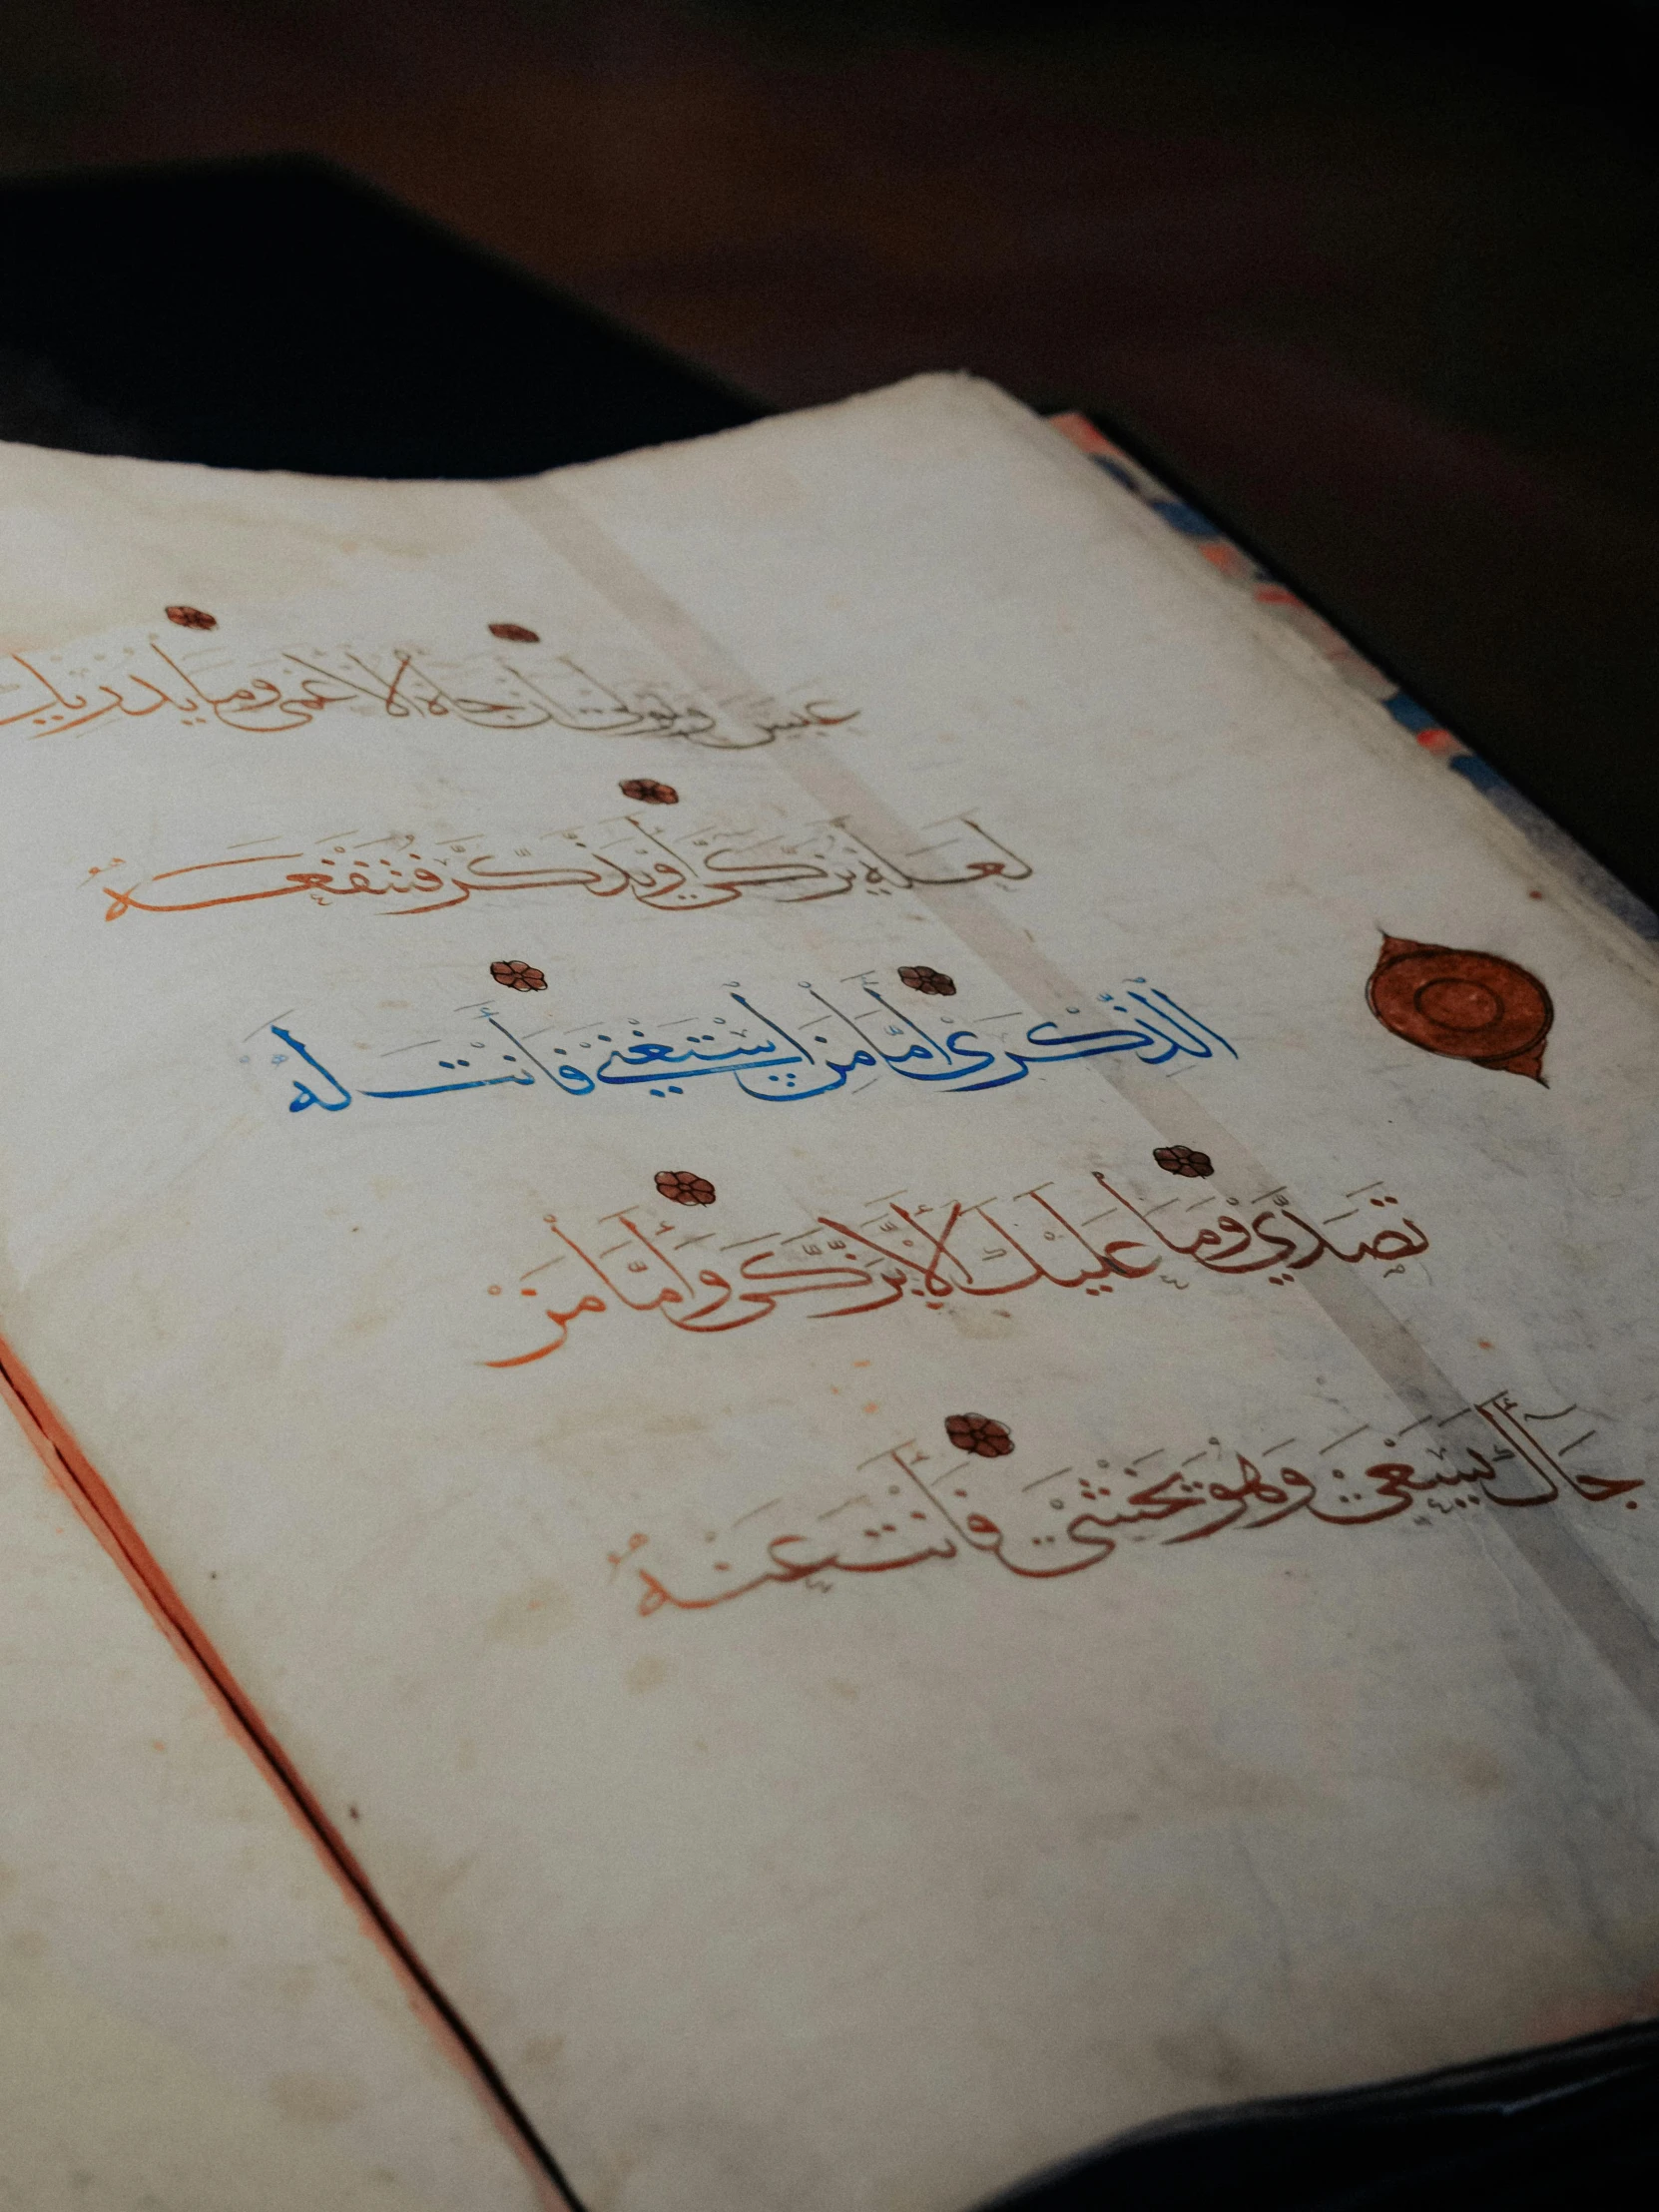 عَبَسَ وَتَوَلَّىٰ أَنْ جَاءَهُ الْأَعْمَىٰ وَمَا يُدْرِيكَ
لَعَلَّهُ يَزَّكَّىٰ أَوْ يَذَّكَّرُ فَتَنْفَعَهُ
الذِّكْرَىٰ أَمَّا مَنِ اسْتَغْنَىٰ فَأَنْتَ لَهُ
تَصَدَّىٰ وَمَا عَلَيْكَ أَلَّا يَزَّكَّىٰ وَأَمَّا مَنْ
جَاءَكَ يَسْعَىٰ وَهُوَ يَخْشَىٰ فَأَنْتَ عَنْهُ